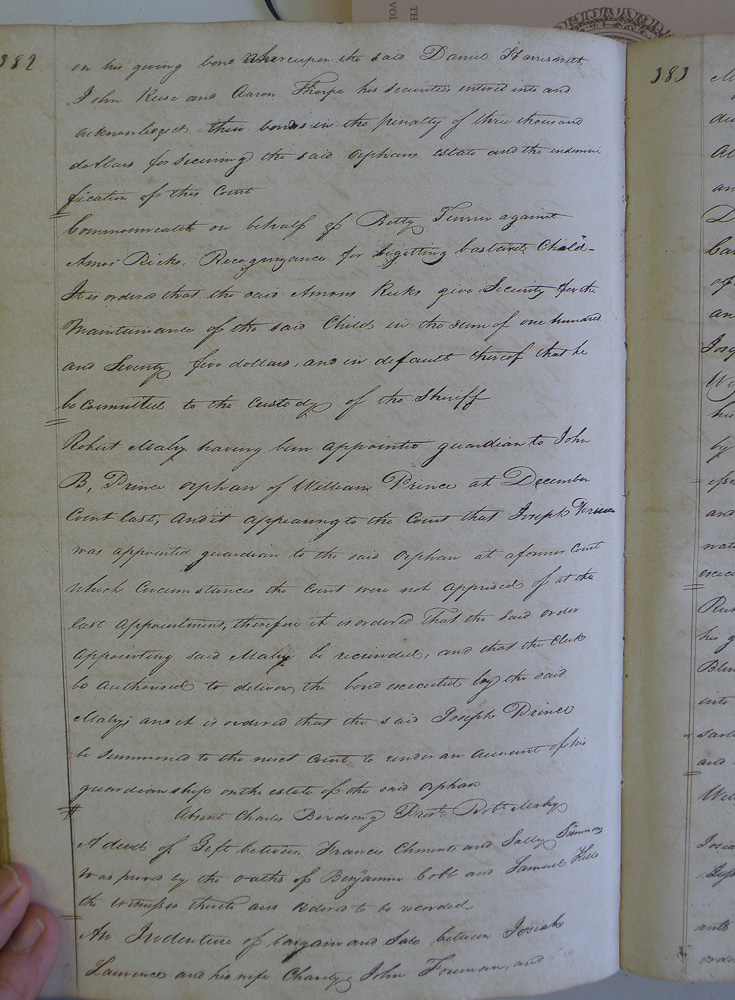 382
on his giving bond Whereupon the said Daniel Harris with
John Rose and Aaron Thorpe his securities entered into and
acknowledged their bonds in the penalty of three thousand
dollars for securing the said orphans estate and the indemni
fication of this Court
Commonwealth on behalf of Betty Turner against
Amos Ricks, Recognizance for begitting bastard Child-
It is ordered that the said Amos Ricks give Security for the
Maintainance of the said Child in the sum of one hundred
and Seventy five dollars, and in default thereof that he
be Committed to the Custody of the Sheriff
Robert Maby having been appointed guardian to John
B, Prince orphan of William Prince at December
Court last, And it appearing to the Court that Joseph
was appointed guardian to the said Orphan at a former Court
which Circumstances the Court were not apprised of at the
last appointment, therefore it is ordered That the said order
appointing said Maby be recinded, and that the Clerk
be Authorised to deliver the bond executed by the said
Maby; and it is ordered that the said Joseph Prince
be summoned to the next Court to render an account of his
guardianship on the estate of the said orphan
Absent Charles Birdsong Prest. Robt. Maby
A deed of Gift between Frances Clements and Sally Simmons
was proved by the oaths of Benjamin Cobb and Samuel
the witnesses thereto and ordered to be recorded
An Indenture of bargain and Sale between Josiah
Lawrence and his wife Charity, John Foreman, and
383